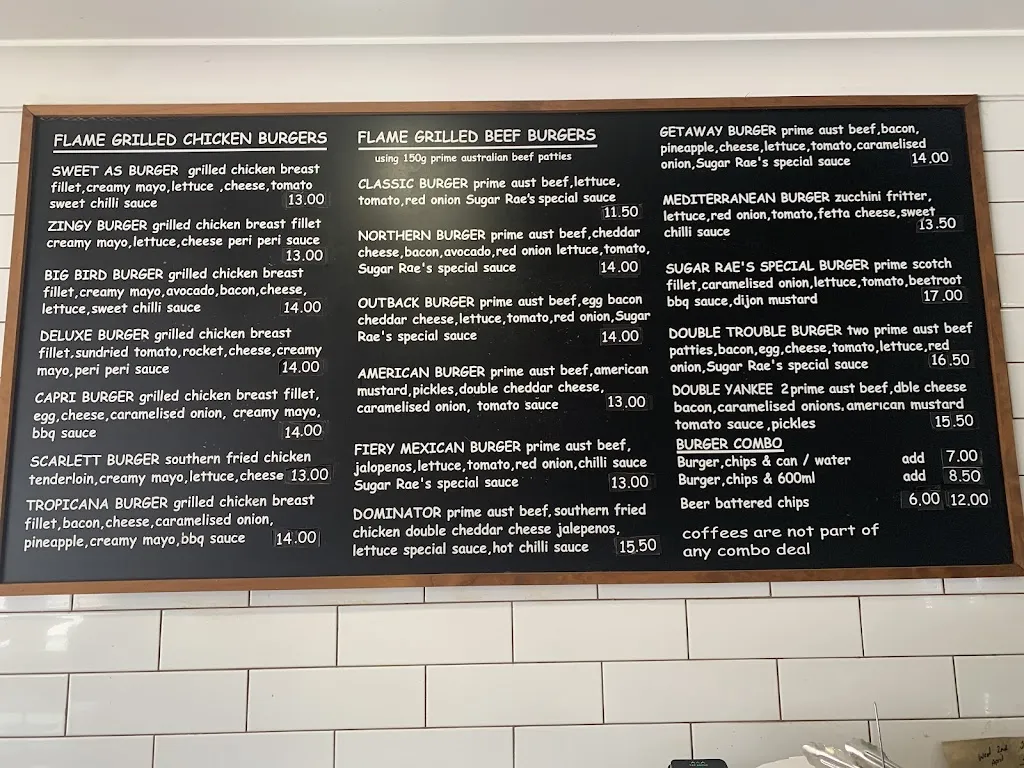 FLAME GRILLED CHICKEN BURGERS
SWEET AS BURGER grilled chicken breast
fillet,creamy mayo,lettuce ,cheese,tomato
sweet chilli sauce 13.00
ZINGY BURGER grilled chicken breast fillet
creamy mayo,lettuce,cheese peri peri sauce
13.00
BIG BIRD BURGER grilled chicken breast
fillet,creamy mayo,avocado,bacon,cheese,
lettuce,sweet chilli sauce 14.00
DELUXE BURGER grilled chicken breast
fillet,sundried tomato,rocket,cheese,creamy
mayo,peri peri sauce 14.00
CAPRI BURGER grilled chicken breast fillet,
egg,cheese,caramelised onion, creamy mayo,
bbq sauce 14.00
SCARLETT BURGER southern fried chicken
tenderloin,creamy mayo,lettuce,cheese 13.00
TROPICANA BURGER grilled chicken breast
fillet,bacon,cheese,caramelised onion,
pineapple,creamy mayo,bbq sauce 14.00
FLAME GRILLED BEEF BURGERS
using 150g prime australian beef patties
CLASSIC BURGER prime aust beef,lettuce,
tomato,red onion Sugar Rae's special sauce
11.50
NORTHERN BURGER prime aust beef,cheddar
cheese,bacon,avocado,red onion lettuce,tomato,
Sugar Rae's special sauce 14.00
OUTBACK BURGER prime aust beef,egg bacon
cheddar cheese,lettuce,tomato,red onion,Sugar
Rae's special sauce 14.00
AMERICAN BURGER prime aust beef,american
mustard,pickles,double cheddar cheese,
caramelised onion, tomato sauce 13.00
FIERY MEXICAN BURGER prime aust beef,
jalopenos,lettuce,tomato,red onion,chilli sauce
Sugar Rae's special sauce 13.00
DOMINATOR prime aust beef,southern fried
chicken double cheddar cheese jalepenos,
lettuce special sauce,hot chilli sauce 15.50
GETAWAY BURGER prime aust beef,bacon,
pineapple,cheese,lettuce,tomato,caramelised
onion,Sugar Rae's special sauce 14.00
MEDITERRANEAN BURGER zucchini fritter,
lettuce,red onion,tomato,fetta cheese,sweet
chilli sauce 13.50
SUGAR RAE'S SPECIAL BURGER prime scotch
fillet,caramelised onion,lettuce,tomato,beetroot
bbq sauce,dijon mustard 17.00
DOUBLE TROUBLE BURGER two prime aust beef
patties,bacon,egg,cheese,tomato,lettuce,red
onion,Sugar Rae's special sauce 16.50
DOUBLE YANKEE 2prime aust beef,dble cheese
bacon,caramelised onions,american mustard
tomato sauce ,pickles 15.50
BURGER COMBO
Burger,chips & can / water add 7.00
Burger,chips & 600ml add 8.50
Beer battered chips 6.00 12.00
coffees are not part of
any combo deal